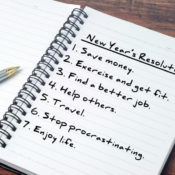 New Year's Resolut
1. Save money.
2. Exercise and get fit.
3. Find a better job.
4. Help others.
5. Travel.
6. Stop procrastinating.
7. Enjoy life.